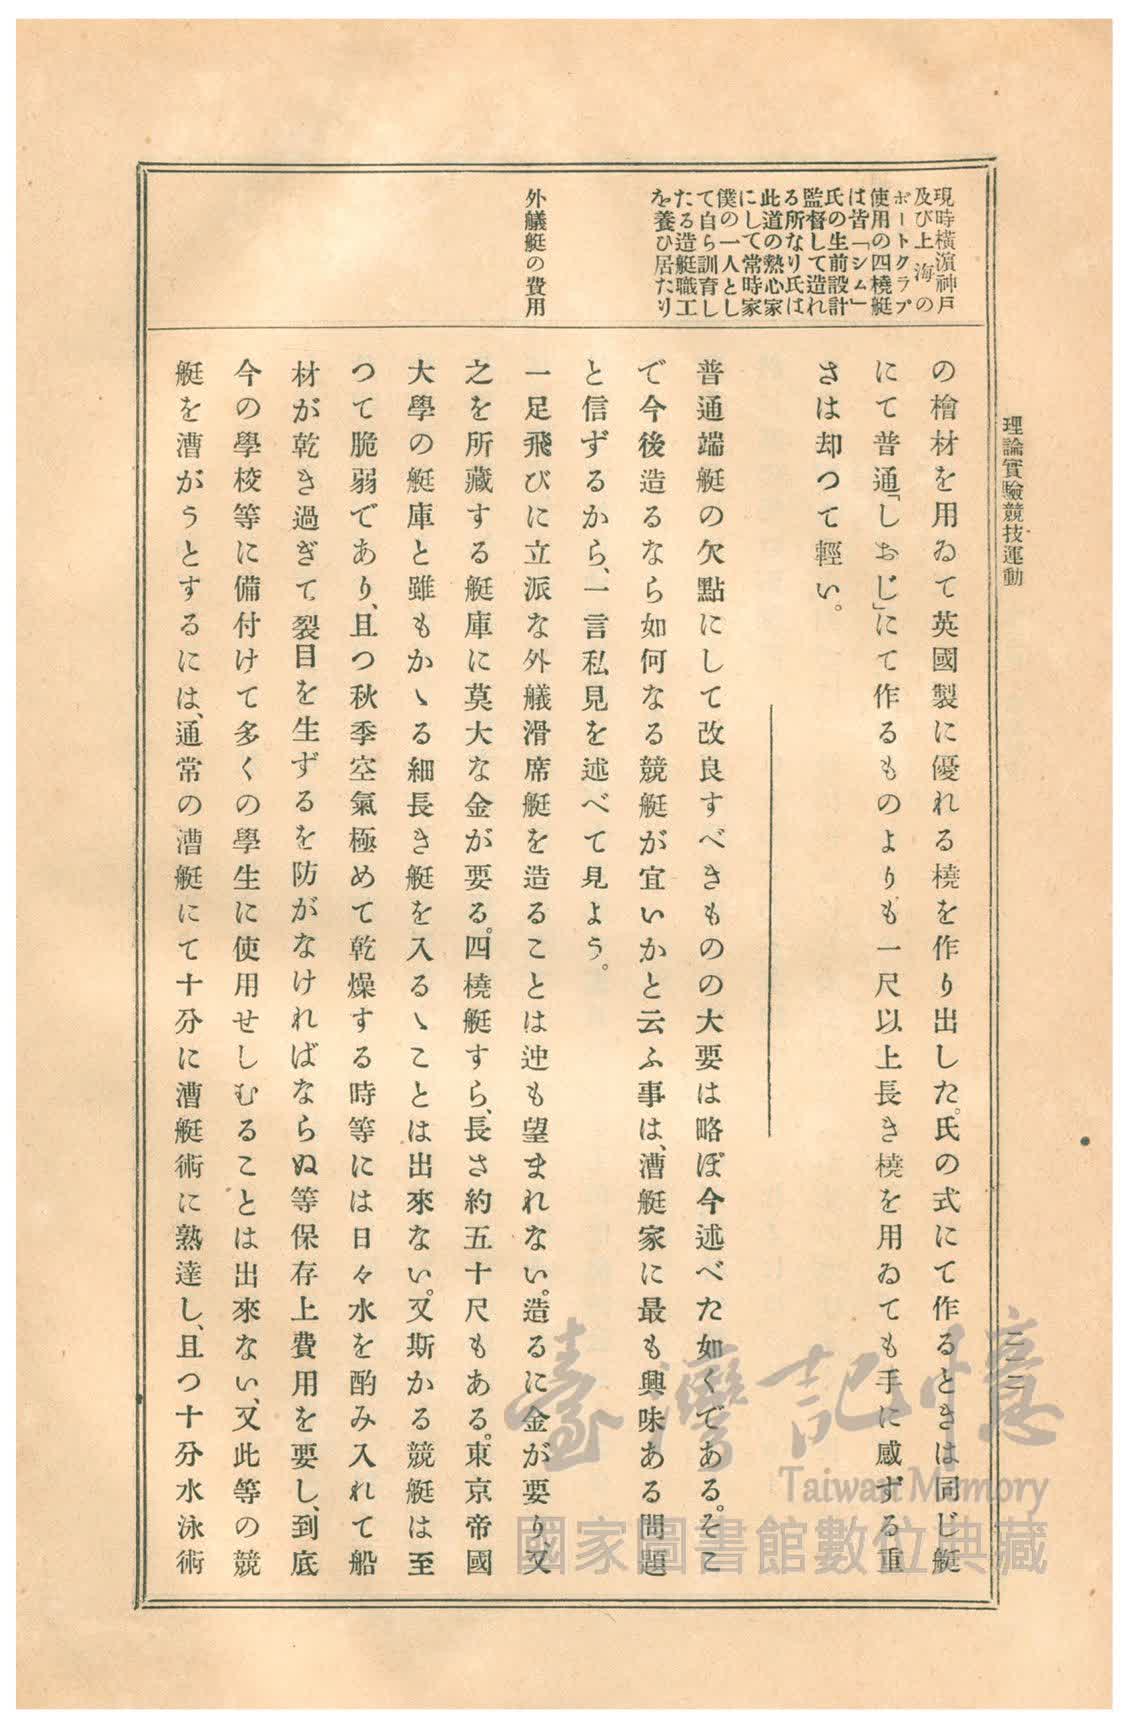 理論實驗競技運動
二一二
現時橫濱神戶
及び上海の
ボートクラブ
使用の四橈艇
は皆「シム」
氏の生前設計
監督して造れ
る所なり氏は
此道の熱心家
にして常時家
僕の一人とし
て自ら訓育し
たる造艇職工
を養ひ居たり
外艤艇の費用
の檜材を用ゐて英國製に優れる橈を作り出した。氏の式にて作るときは同じ艇
にて普通「しおじ」にて作るものよりも一尺以上長き橈を用ゐても手に感ずる重
さは却つて輕い。
普通端艇の欠點にして改良すべきものの大要は略ぼ今述べた如くである。そこ
で今後造るなら如何なる競艇が宜いかと云ふ事は、漕艇家に最も興味ある問題
と信ずるから、一言私見を述べて見よう。
一足飛びに立派な外艤滑席艇を造ることは迚も望まれない。造るに金が要り、又
之を所藏する艇庫に莫大な金が要る。四橈艇すら、長さ約五十尺もある。東京帝國
大學の艇庫と雖もかゝる細長き艇を入るゝことは出來ない。又斯かる競艇は至
つて脆弱であり、且つ秋季空氣極めて乾燥する時等には日々水を酌み入れて船
材が乾き過ぎて裂目を生ずるを防がなければならぬ等保存上費用を要し、到底
今の學校等に備付けて多くの學生に使用せしむることは出來ない、又此等の競
艇を漕がうとするには、通常の漕艇にて十分に漕艇術に熟達し、且つ十分水泳術
臺灣記憶
Taiwan Memory
國家圖書館數位典藏